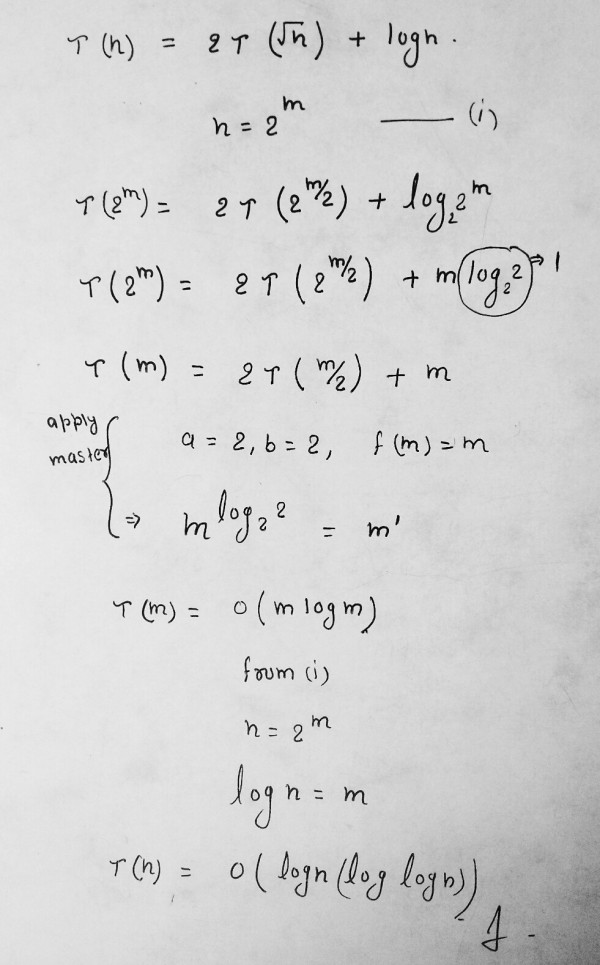 T(n) = 2T(√n) + logn.
n = 2^m —— (i)
T(2^m) = 2T(2^m/2) + log₂2^m
T(2^m) = 2T(2^m/2) + m log₂2 ⇒ 1
T(m) = 2T(m/2) + m
apply master
a = 2, b = 2, f(m) = m
⇒ m^log₂2 = m'
T(m) = O(m logm)
from (i)
n = 2^m
log n = m
T(n) = O(logn(log logn))